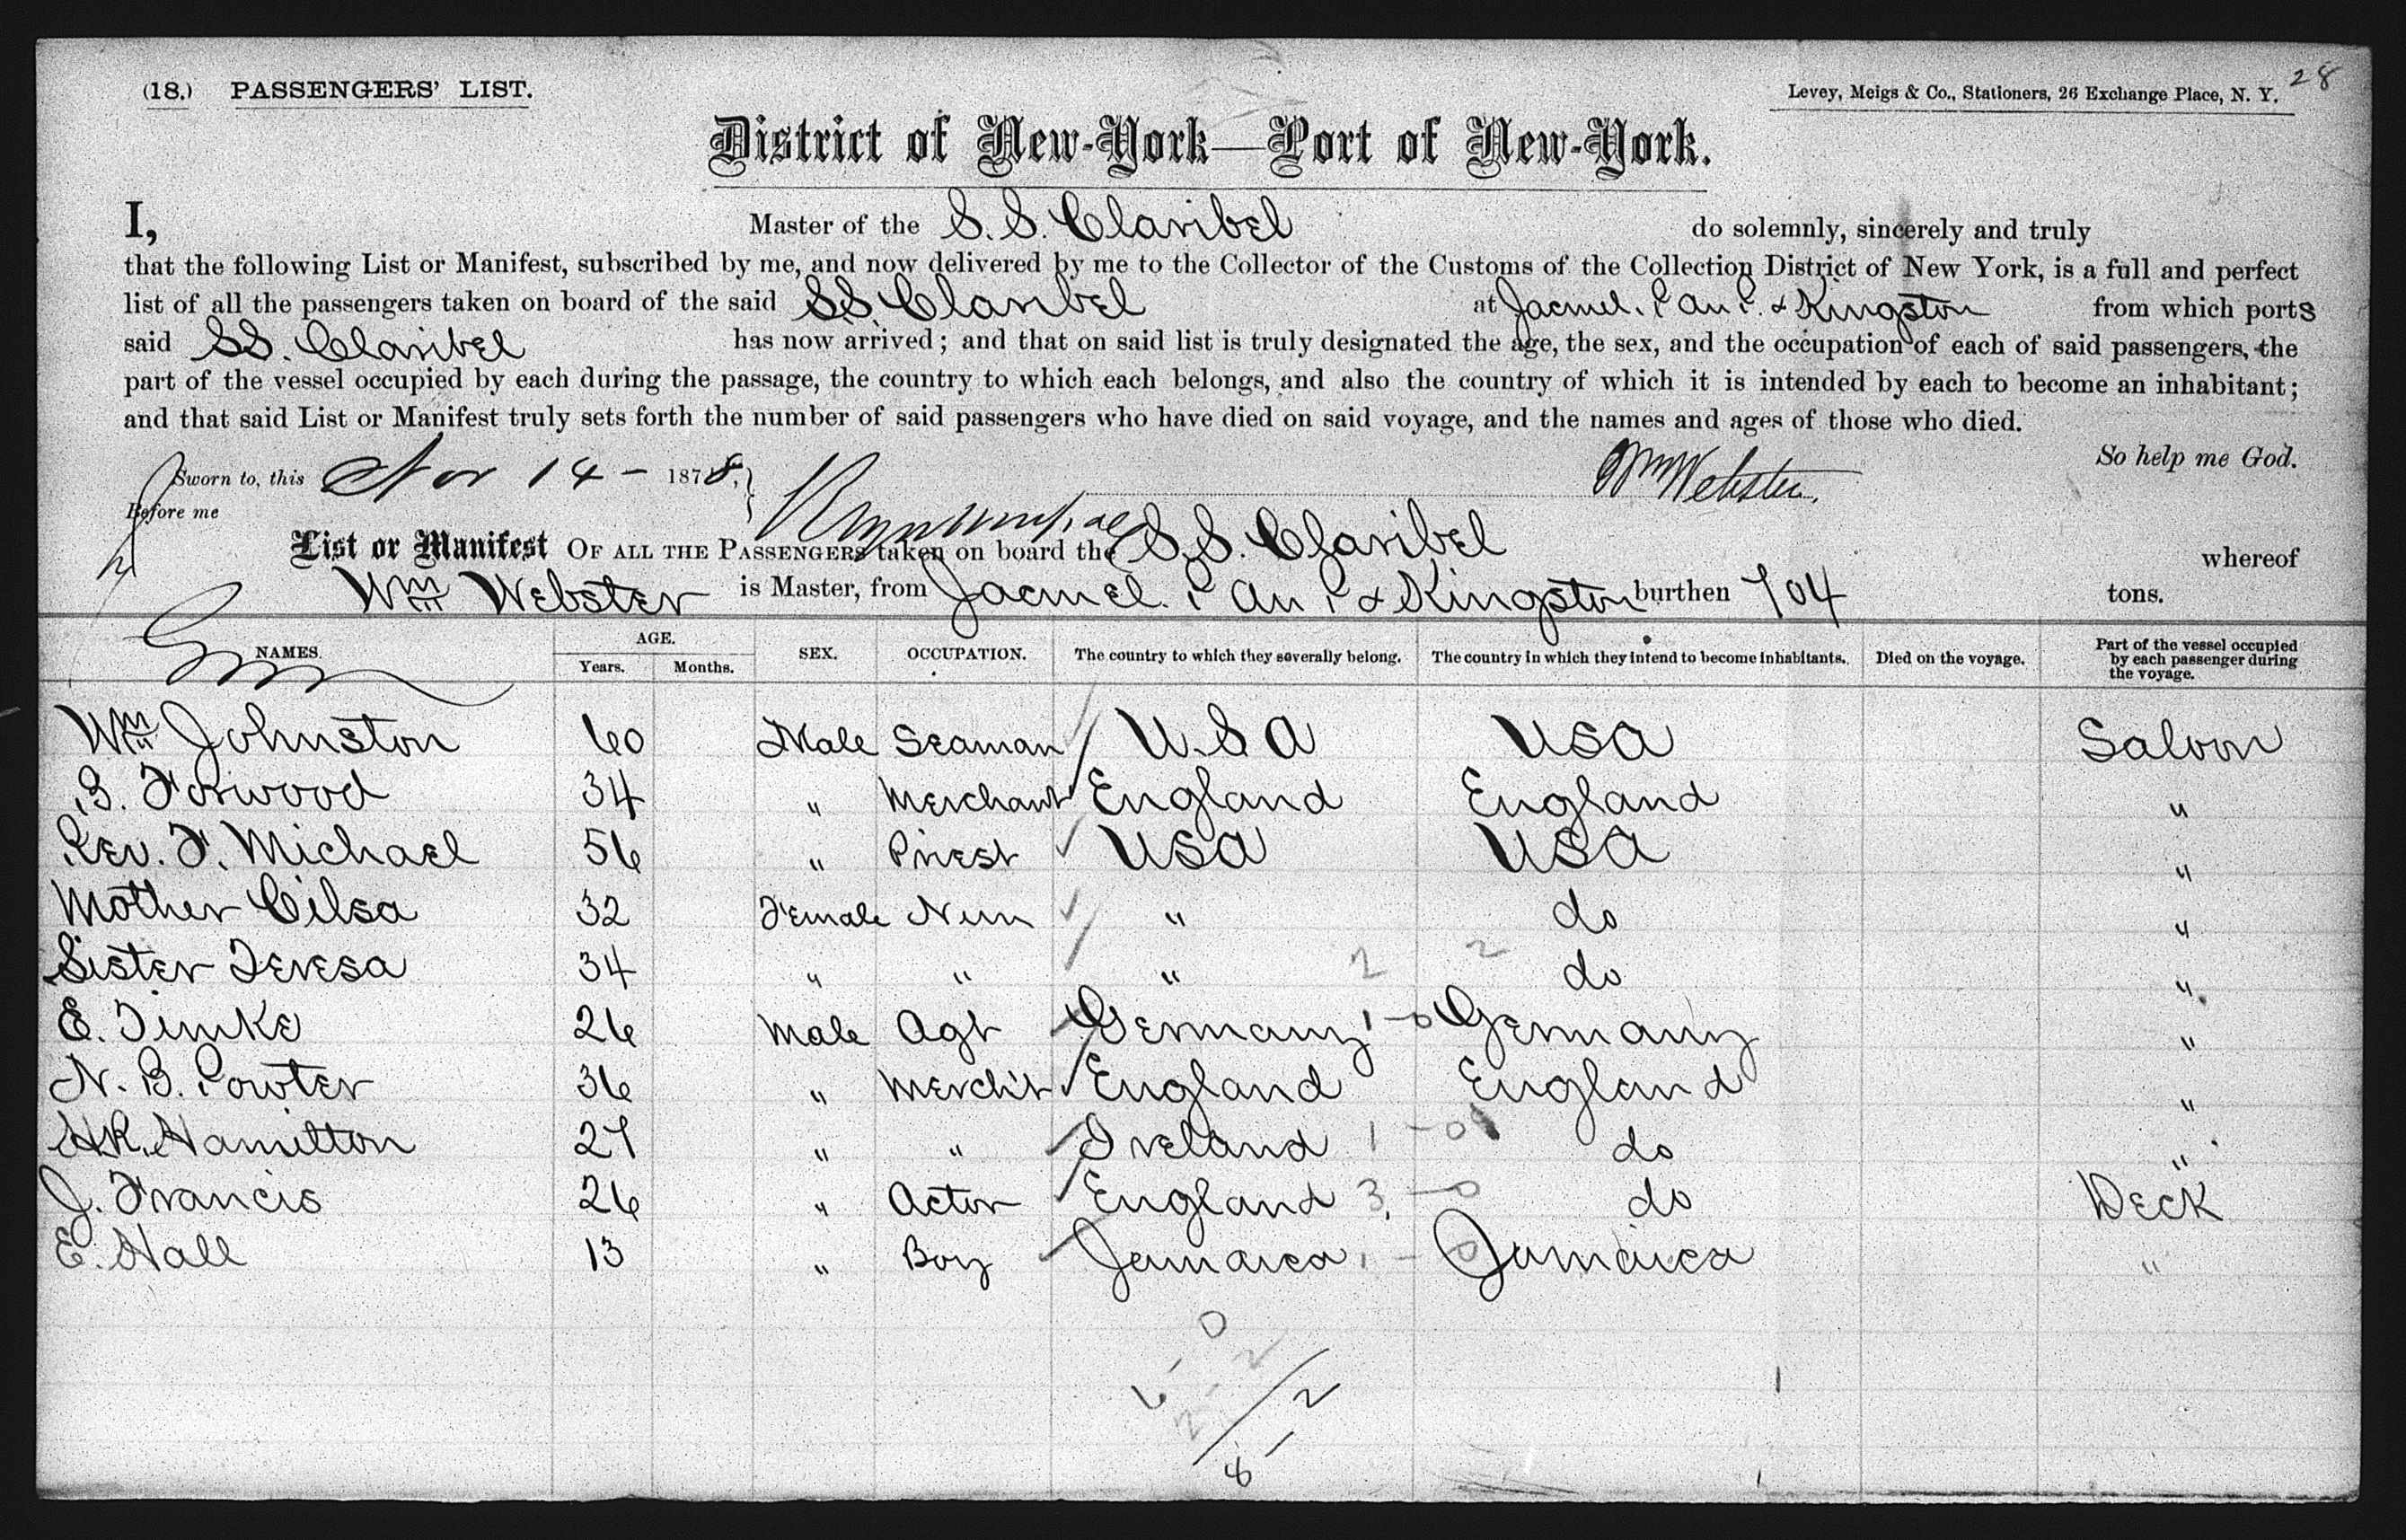 (18.) PASSENGERS' LIST.
Levey, Meigs & Co., Stationers, 26 Exchange Place, N. Y.
28
District of New-York—Port of New-York.
I, Master of the S. S. Claribel do solemnly, sincerely and truly
that the following List or Manifest, subscribed by me, and now delivered by me to the Collector of the Customs of the Collection District of New York, is a full and perfect
list of all the passengers taken on board of the said S.S. Claribel at Jacmel. P au P. & Kingston from which ports
said SS. Claribel has now arrived; and that on said list is truly designated the age, the sex, and the occupation of each of said passengers, the
part of the vessel occupied by each during the passage, the country to which each belongs, and also the country of which it is intended by each to become an inhabitant;
and that said List or Manifest truly sets forth the number of said passengers who have died on said voyage, and the names and ages of those who died.
So help me God.
Sworn to, this Nov 14 - 1878. Wm Webster.
Before me
List or Manifest OF ALL THE PASSENGERS taken on board the S.S. Claribel whereof
Wm Webster is Master, from Jacmel. P au P & Kingston burthen 704 tons.
NAMES. AGE. Years. Months. SEX. OCCUPATION. The country to which they severally belong. The country in which they intend to become inhabitants. Died on the voyage. Part of the vessel occupied by each passenger during the voyage.
Wm Johnston 60 Male Seaman U.S A USA Saloon
B. Forwood 34 " Merchant England England "
Rev. F. Michael 56 " Priest USA USA "
Mother Cilsa 32 Female Nun " do "
Sister Teresa 34 " " " 2 2 do "
E. Timke 26 Male Agt Germany 1 - 0 Germany "
N. B. Powter 36 " Merch't England England "
H.R. Hamilton 27 " " Ireland 1 - 0 do "
J. Francis 26 " Actor England 3 - 0 do Deck
E. Hall 13 " Boy Jamaica 1 - 0 Jamaica "
6 - 0
2 - 2
8 - 2